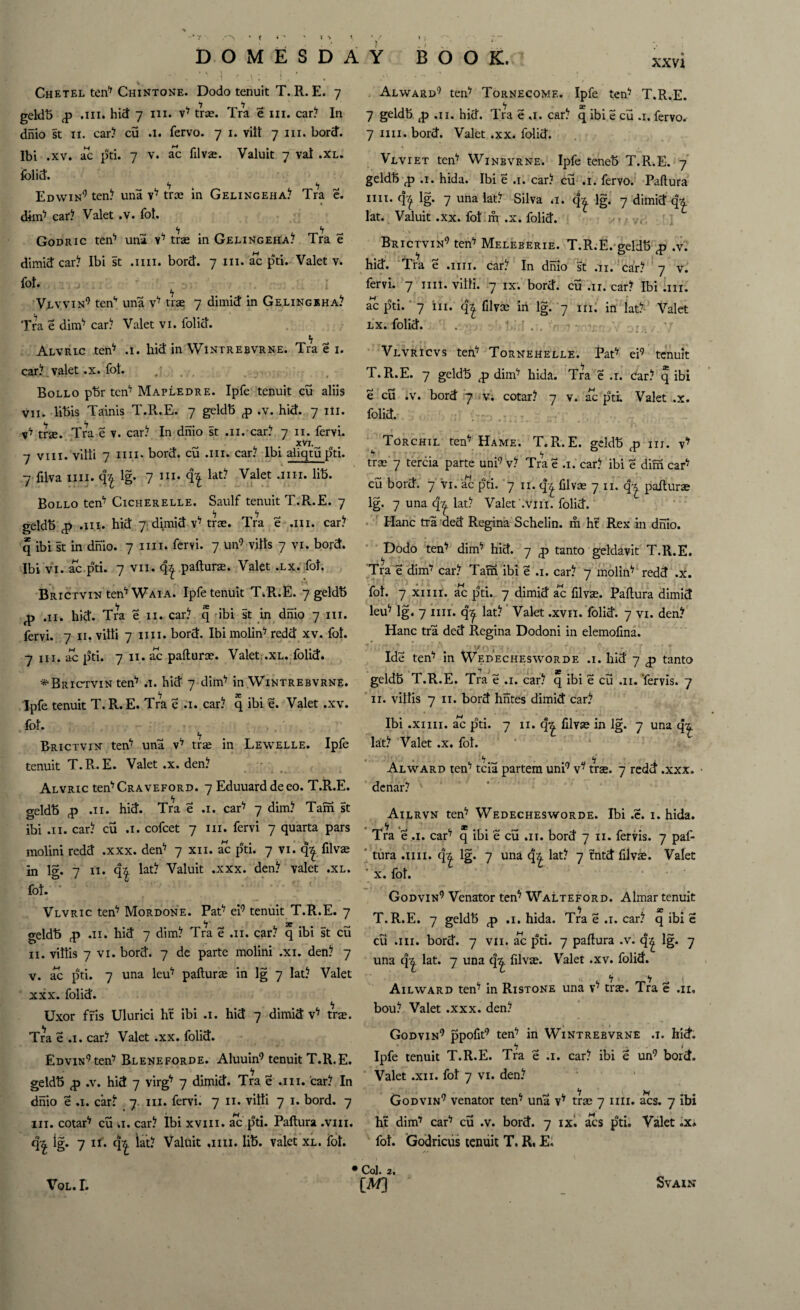 DOMESDAY BOOK.
xxvi
Chetel ten⁹ Chintone. Dodo tenuit T. R. E. 7
geldƀ ꝓ .iii. hiđ 7 iii. v⁹ træ. Tra ē iii. car? In
dnio st ii. car? cū .i. servo. 7 i. vilł 7 iii. borđ.
Ibi .xv. āc p̄ti. 7 v. āc silvæ. Valuit 7 vał .xl.
soliđ.
Edwin⁹ ten? unā v⁹ træ in Gelingeha? Tra ē.
dim⁹ car? Valet .v. soł.
Godric ten⁹ unā v⁹ træ in Gelingeha? Tra ē
dimiđ car? Ibi st .iiii. borđ. 7 iii. āc p̄ti. Valet v.
soł.
Vlvvin⁹ ten⁹ unā v⁹ træ 7 dimiđ in Gelingeha?
Tra ē dim⁹ car? Valet vi. soliđ.
Alvric ten⁹ .i. hiđ in Wintrebvrne. Tra ē i.
car? valet .x. soł.
Bollo p̄br ten⁹ Mapledre. Ipse tenuit cū aliis
vii. libis Tainis T.R.E. 7 geldƀ ꝓ .v. hiđ. 7 iii.
v⁹ træ. Tra ē v. car? In dnio st .ii. car? 7 ii. servi.
xvi.
7 viii. villi 7 iiii. borđ. cū .iii. car? Ibi aliqtū p̄ti.
7 silva iiii. q᷎ lg. 7 iii. q᷎ lat? Valet .iiii. liƀ.
Bollo ten⁹ Cicherelle. Saulf tenuit T.R.E. 7
geldƀ ꝓ .iii. hiđ 7 dimiđ v⁹ træ. Tra ē .iii. car?
q̄ ibi st in dnio. 7 iiii. servi. 7 un⁹ vilłs 7 vi. borđ.
Ibi vi. āc p̄ti. 7 vii. q᷎ pasturæ. Valet .lx. soł.
Brictvin ten⁹ Waia. Ipse tenuit T.R.E. 7 geldƀ
ꝓ .ii. hiđ. Tra ē ii. car? q̄ ibi st in dnio 7 iii.
servi. 7 ii. villi 7 iiii. borđ. Ibi molin⁹ redđ xv. soł.
7 iii. āc p̄ti. 7 ii. āc pasturæ. Valet .xl. soliđ.
*Brictvin ten⁹ .i. hiđ 7 dim⁹ in Wintrebvrne.
Ipse tenuit T. R. E. Tra ē .i. car? q̄ ibi ē. Valet .xv.
soł.
Brictvin ten⁹ unā v⁹ træ in Lewelle. Ipse
tenuit T.R.E. Valet .x. den?
Alvric ten⁹ Craveford. 7 Eduuard de eo. T.R.E.
geldƀ ꝓ .ii. hiđ. Tra ē .i. car⁹ 7 dim? Tam̄ st
ibi .ii. car? cū .i. coscet 7 iii. servi 7 quarta pars
molini redđ .xxx. den⁹ 7 xii. āc p̄ti. 7 vi. q᷎ silvæ
in lg. 7 ii. q᷎ lat? Valuit .xxx. den? valet .xl.
soł.
Vlvric ten⁹ Mordone. Pat⁹ ei⁹ tenuit T.R.E. 7
geldƀ ꝓ .ii. hiđ 7 dim? Tra ē .ii. car? q̄ ibi st cū
ii. villis 7 vi. borđ. 7 de parte molini .xi. den? 7
v. āc p̄ti. 7 una leu⁹ pasturæ in lg 7 lat? Valet
xxx. soliđ.
Uxor fris Ulurici ht̄ ibi .i. hiđ 7 dimiđ v⁹ træ.
Tra ē .i. car? Valet .xx. soliđ.
Edvin⁹ ten⁹ Bleneforde. Aluuin⁹ tenuit T.R.E.
geldƀ ꝓ .v. hiđ 7 virg⁹ 7 dimiđ. Tra ē .iii. car? In
dnio ē .i. car? 7 iii. servi. 7 ii. villi 7 i. bord. 7
iii. cotar⁹ cū .i. car? Ibi xviii. āc p̄ti. Pastura .viii.
q᷎ lg. 7 ii. q᷎ lat? Valuit .iiii. liƀ. valet xl. soł.
Alward⁹ ten⁹ Tornecome. Ipse ten? T.R.E.
7 geldƀ ꝓ .ii. hiđ. Tra ē .i. car⁹ q̄ ibi ē cū .i. servo.
7 iiii. borđ. Valet .xx. soliđ.
Vlviet ten⁹ Winbvrne. Ipse teneƀ T.R.E. 7
geldƀ ꝓ .i. hida. Ibi ē .i. car? cū .i. servo. Pastura
iiii. q᷎ lg. 7 una lat? Silva .i. q᷎ lg. 7 dimiđ q᷎
lat. Valuit .xx. soł m̄ .x. soliđ.
Brictvin⁹ ten⁹ Meleberie. T.R.E. geldƀ ꝓ .v.
hiđ. Tra ē .iiii. car? In dnio st .ii. car? 7 v.
servi. 7 iiii. villi. 7 ix. borđ. cū .ii. car? Ibi .iii.
āc p̄ti. 7 iii. q᷎ silvæ in lg. 7 iii. in lat? Valet
lx. soliđ.
Vlvricvs ten⁹ Tornehelle. Pat⁹ ei⁹ tenuit
T.R.E. 7 geldƀ ꝓ dim⁹ hida. Tra ē .i. car? q̄ ibi
ē cū .v. borđ 7 v. cotar? 7 v. āc p̄ti. Valet .x.
soliđ.
Torchil ten⁹ Hame. T.R.E. geldƀ ꝓ iii. v⁹
træ 7 tercia parte uni⁹ v? Tra ē .i. car? ibi ē dim̄ car⁹
cū borđ. 7 vi. āc p̄ti. 7 ii. q᷎ silvæ 7 ii. q᷎ pasturæ
lg. 7 una q᷎ lat? Valet .viii. soliđ.
Hanc trā deđ Regina Schelin. m̄ ht̄ Rex in dnio.
Dodo ten⁹ dim⁹ hiđ. 7 ꝓ tanto geldavit T.R.E.
Tra ē dim⁹ car? Tam̄ ibi ē .i. car? 7 molin⁹ redđ .x.
soł. 7 xiiii. āc p̄ti. 7 dimiđ āc silvæ. Pastura dimiđ
leu⁹ lg. 7 iiii. q᷎ lat? Valet .xvii. soliđ. 7 vi. den?
Hanc trā deđ Regina Dodoni in elemosina.
Idē ten⁹ in Wedechesworde .i. hiđ 7 ꝓ tanto
geldƀ T.R.E. Tra ē .i. car? q̄ ibi ē cū .ii. servis. 7
ii. villis 7 ii. borđ hn̄tes dimiđ car?
Ibi .xiiii. āc p̄ti. 7 ii. q᷎ silvæ in lg. 7 una q᷎
lat? Valet .x. soł.
Alward ten⁹ tciā partem uni⁹ v⁹ træ. 7 redđ .xxx.
denar?
Ailrvn ten⁹ Wedechesworde. Ibi .ē. i. hida.
Tra ē .i. car⁹ q̄ ibi ē cū .ii. borđ 7 ii. servis. 7 pas-
tura .iiii. q᷎ lg. 7 una q᷎ lat? 7 tn̄tđ silvæ. Valet
x. soł.
Godvin⁹ Venator ten⁹ Walteford. Almar tenuit
T.R.E. 7 geldƀ ꝓ .i. hida. Tra ē .i. car? q̄ ibi ē
cū .iii. borđ. 7 vii. āc p̄ti. 7 pastura .v. q᷎ lg. 7
una q᷎ lat. 7 una q᷎ silvæ. Valet .xv. soliđ.
Ailward ten⁹ in Ristone una v⁹ træ. Tra ē .ii.
bou? Valet .xxx. den?
Godvin⁹ pposit⁹ ten⁹ in Wintrebvrne .i. hiđ.
Ipse tenuit T.R.E. Tra ē .i. car? ibi ē un⁹ borđ.
Valet .xii. soł 7 vi. den?
Godvin⁹ venator ten⁹ unā v⁹ træ 7 iiii. ācs. 7 ibi
ht̄ dim⁹ car⁹ cū .v. borđ. 7 ix. ācs p̄ti. Valet .x.
soł. Godricus tenuit T. R. E.
* Col. 2.
Vol. I.
[M]
Svain